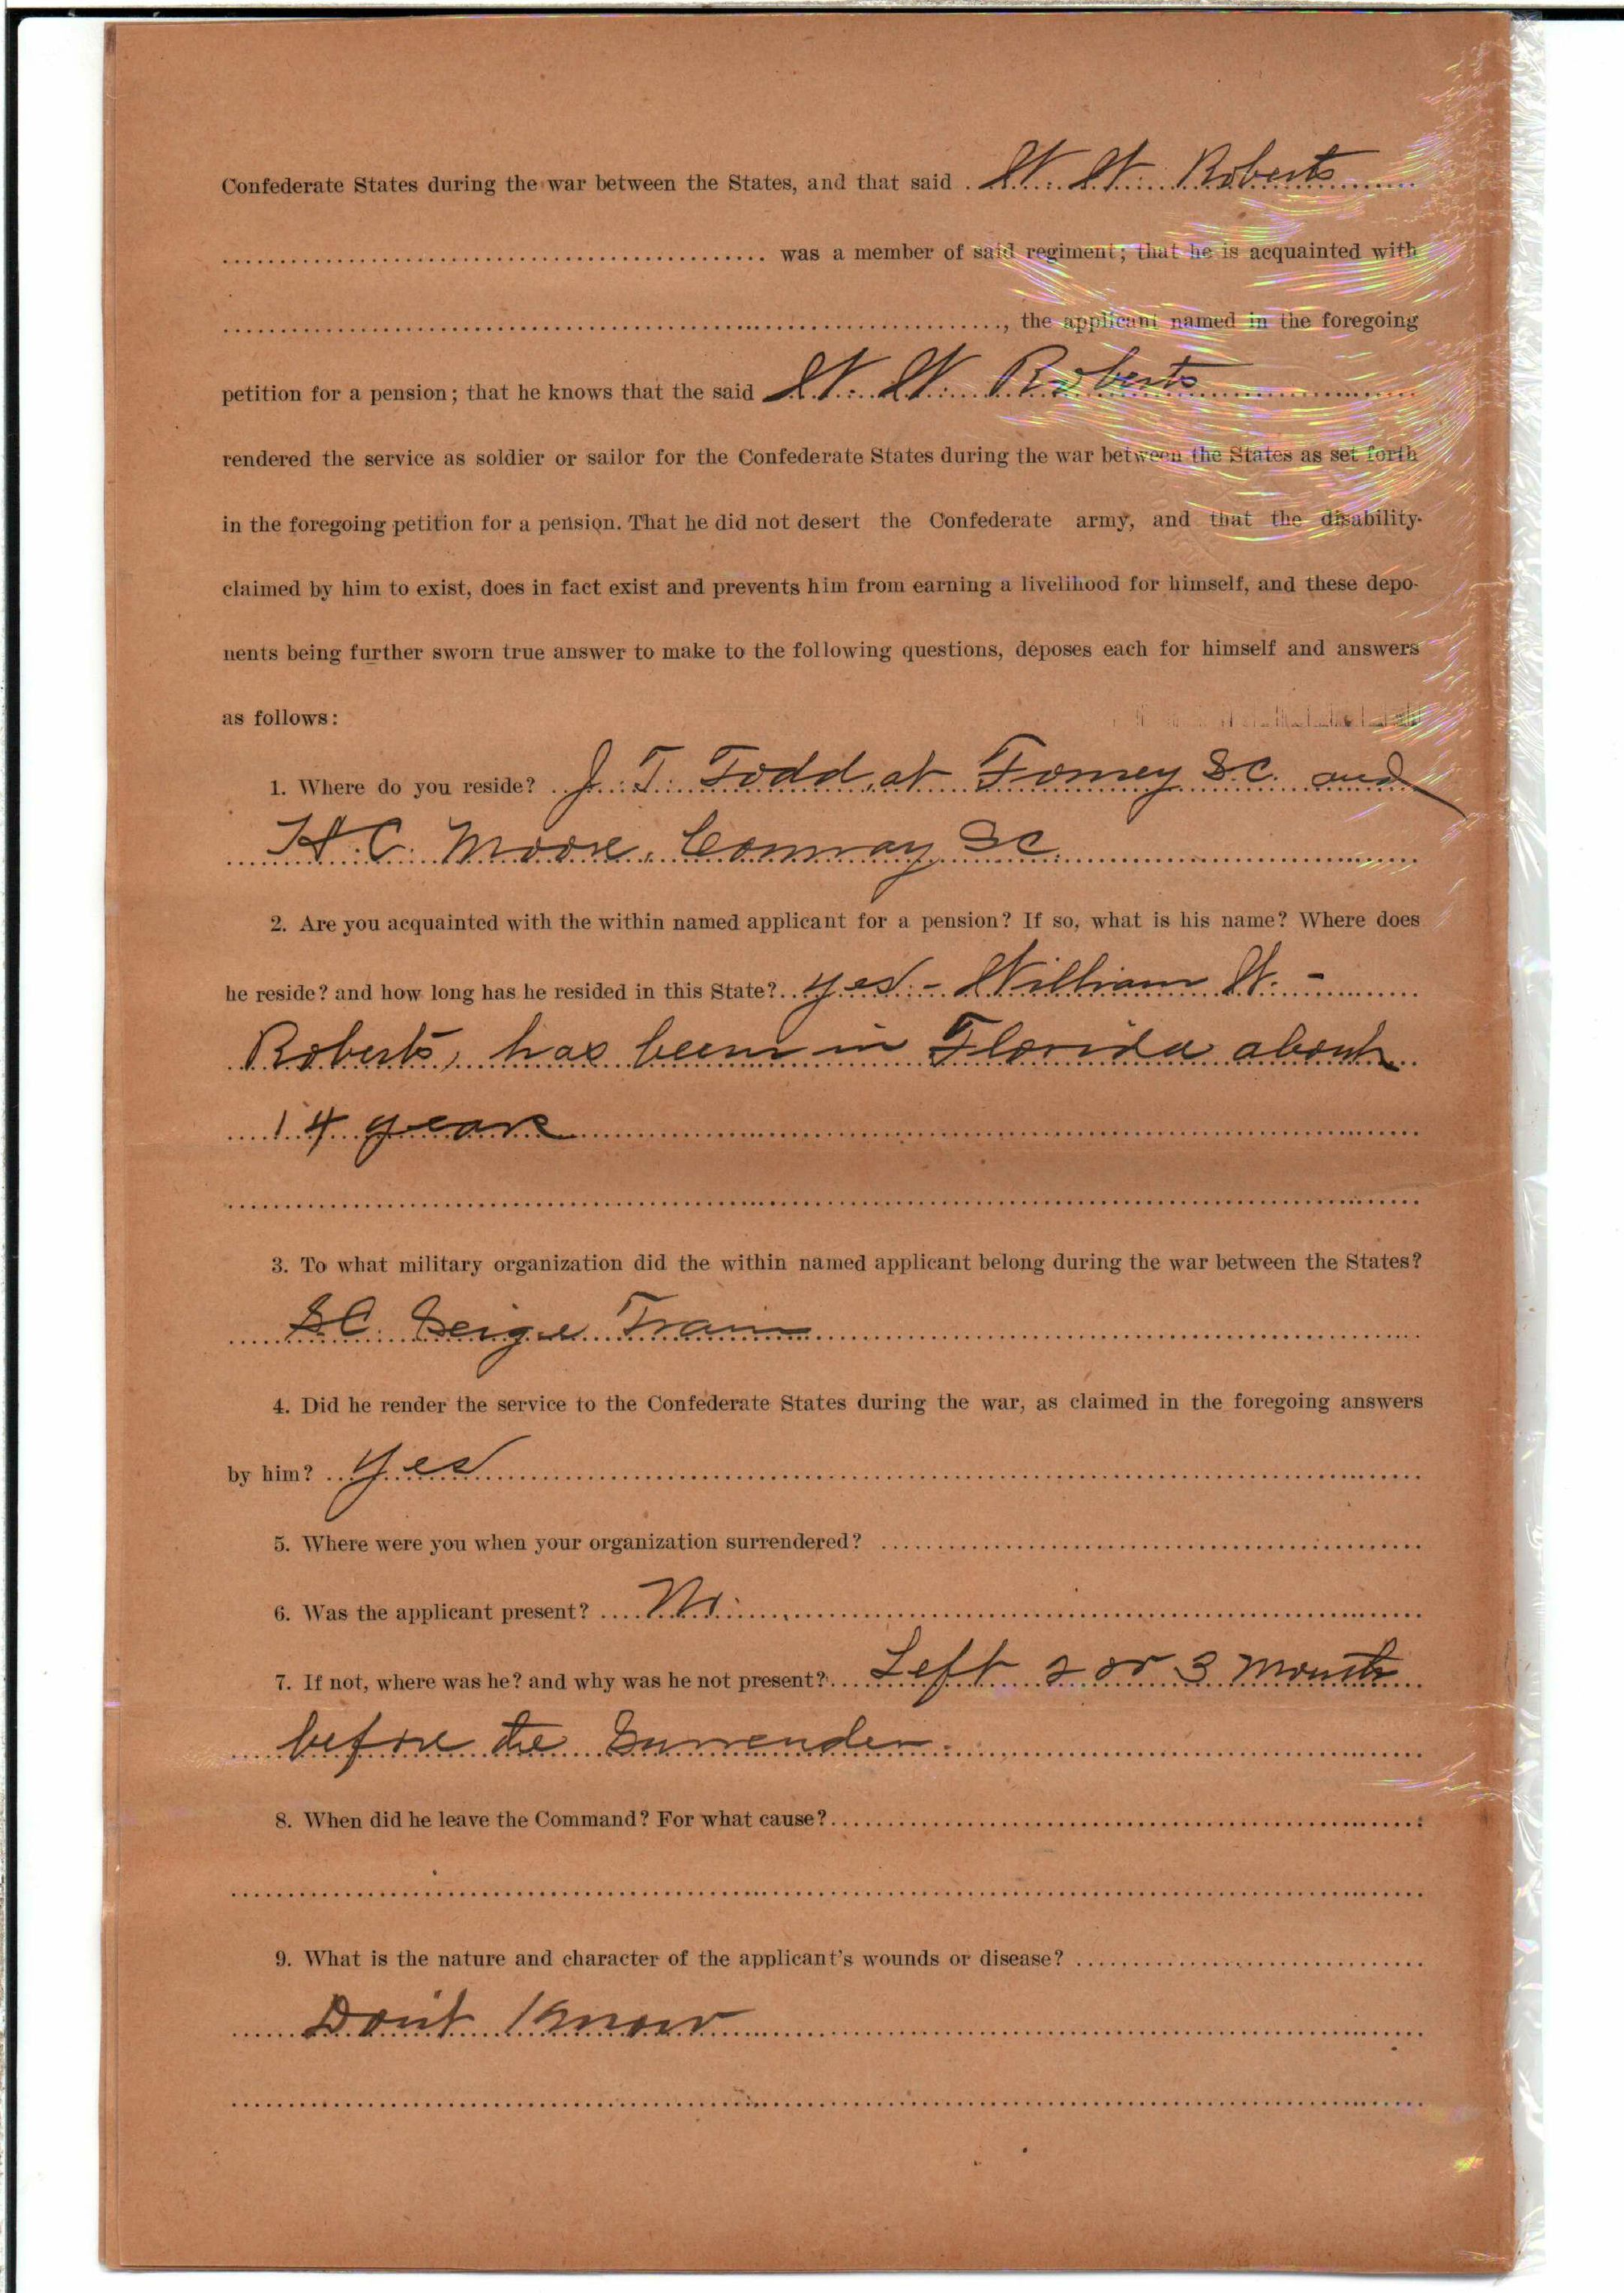 Confederate States during the war between the States, and that said W. W. Roberts
was a member of said regiment; that he is acquainted with
, the applicant named in the foregoing
petition for a pension; that he knows that the said W. W. Roberts
rendered the service as soldier or sailor for the Confederate States during the war between the States as set forth
in the foregoing petition for a pension. That he did not desert the Confederate army, and that the disability
claimed by him to exist, does in fact exist and prevents him from earning a livelihood for himself, and these depo-
nents being further sworn true answer to make to the following questions, deposes each for himself and answers
as follows:
1. Where do you reside? J. T. Todd at Forney S.C. and
H. C. Moore, Conway SC
2. Are you acquainted with the within named applicant for a pension? If so, what is his name? Where does
he reside? and how long has he resided in this State? yes - William W. -
Roberts, has been in Florida about
14 years
3. To what military organization did the within named applicant belong during the war between the States?
S.C. Seige Train
4. Did he render the service to the Confederate States during the war, as claimed in the foregoing answers
by him? Yes
5. Where were you when your organization surrendered?
6. Was the applicant present? No
7. If not, where was he? and why was he not present? Left 2 or 3 months
before the Surrender
8. When did he leave the Command? For what cause?
9. What is the nature and character of the applicant's wounds or disease?
Don't Know